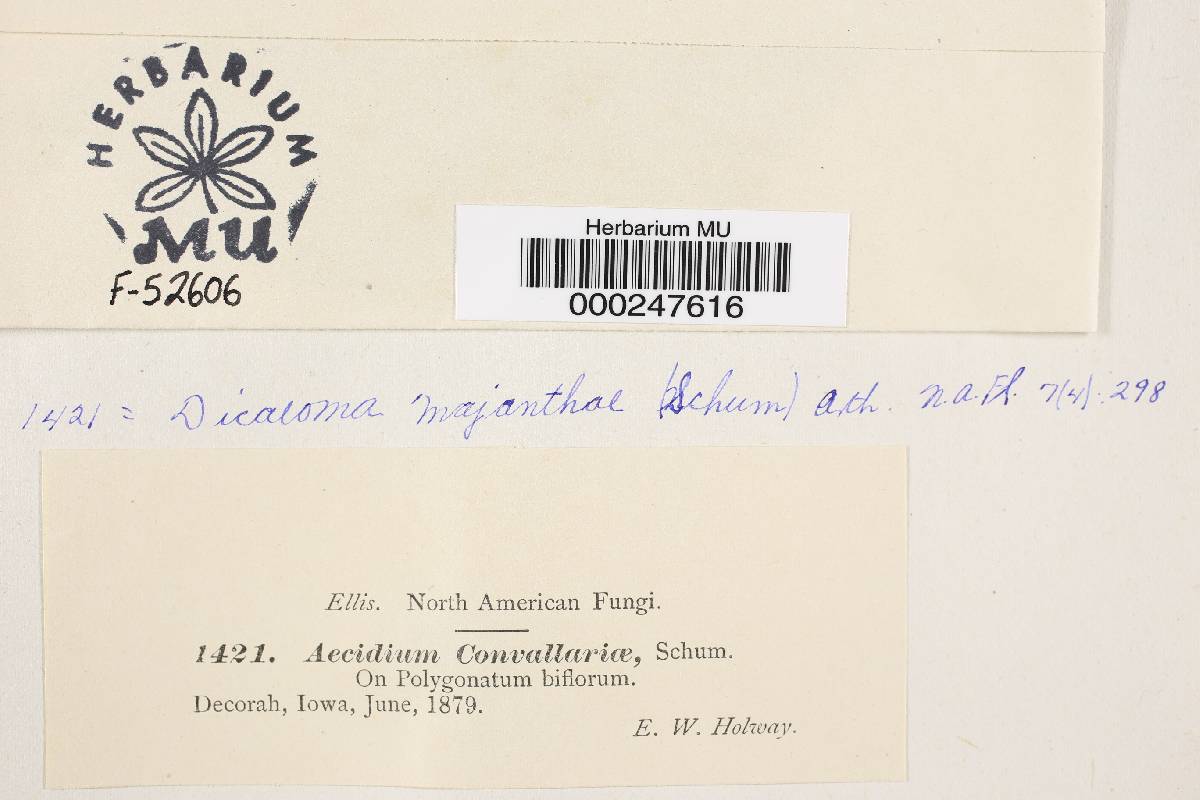 HERBARIUM
MU
F-52606
Herbarium MU
000247616
1421 = Dicaeoma majanthae (Schum) Arth. N.A.Fl. 7(4): 298
Ellis. North American Fungi.
1421. Aecidium Convallariæ, Schum.
On Polygonatum biflorum.
Decorah, Iowa, June, 1879.
E. W. Holway.